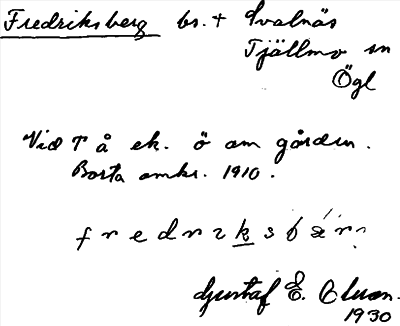 Fredriksberg bs. + Svalnäs
Tjällmo sn
Ögl
Vid T å ek. ö om gården.
Borta omkr. 1910.
fredrıksbärı
Gustaf E. Olsson.
1930